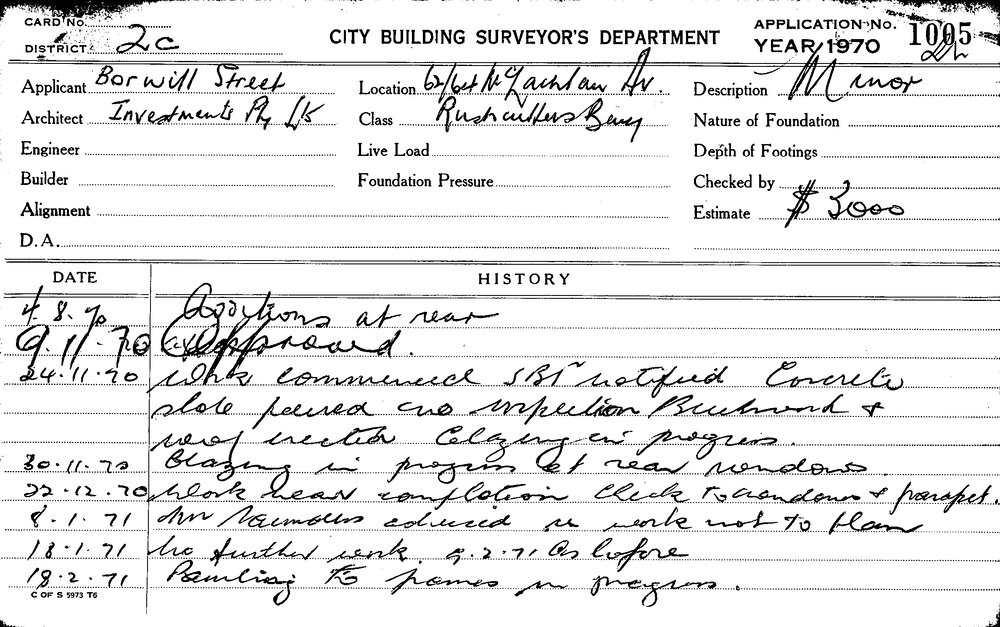 CARD No.
DISTRICT 2C
CITY BUILDING SURVEYOR'S DEPARTMENT
APPLICATION No. 1005
YEAR/1970
Applicant Borwill Street
Location 62/64 McLachlan Av.
Description Minor
Architect Investments Pty Ltd
Class Rushcutters Bay
Nature of Foundation
Engineer
Live Load
Depth of Footings
Builder
Foundation Pressure
Checked by
Alignment
Estimate $ 3000
D.A.
DATE HISTORY
4.8.70 Additions at rear
9.11.70 Approved.
24.11.70 Work commenced notified Concrete
slab poured no inspection Brickwork &
roof erected Glazing in progress.
30.11.70 Glazing in progress at rear windows.
22.12.70 Work near completion Check to windows & parapet.
8.1.71 Mr advised re work not to plan
18.1.71 No further work. 9.2.71 As before
18.2.71 Painting to frames in progress.
C OF S 5973 T6